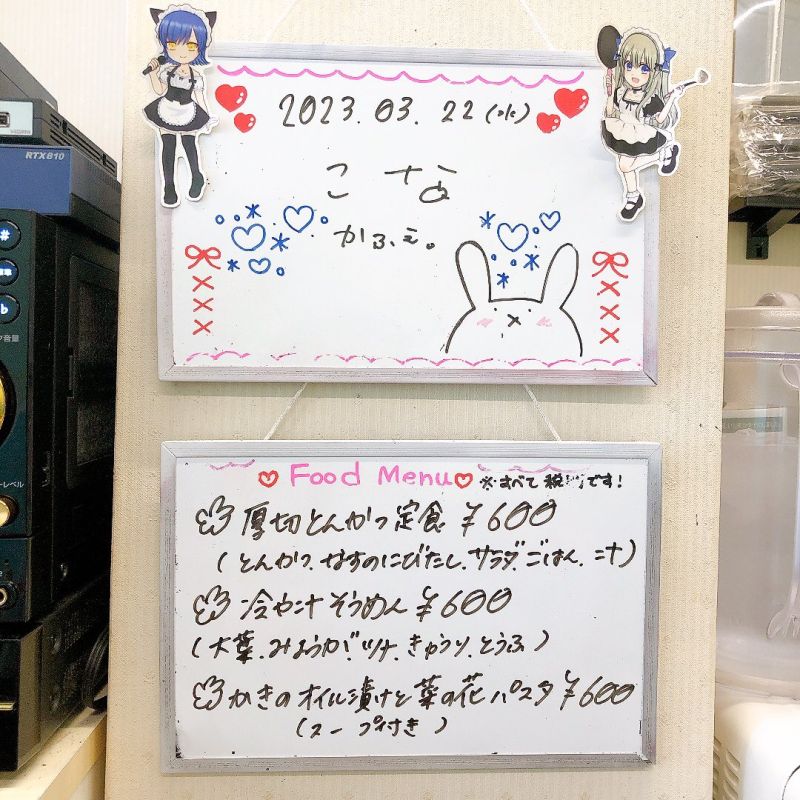 RTX810
2023.03.22(水)
こな
かふぇ。
Food Menu ※すべて税です!
厚切とんかつ定食 ¥600
(とんかつ、なすのにびたし、サラダ、ごはん、汁)
冷や汁そうめん ¥600
(大葉、みょうが、ツナ、きゅうり、とうふ)
かきのオイル漬けと菜の花パスタ ¥600
(スープ付き)